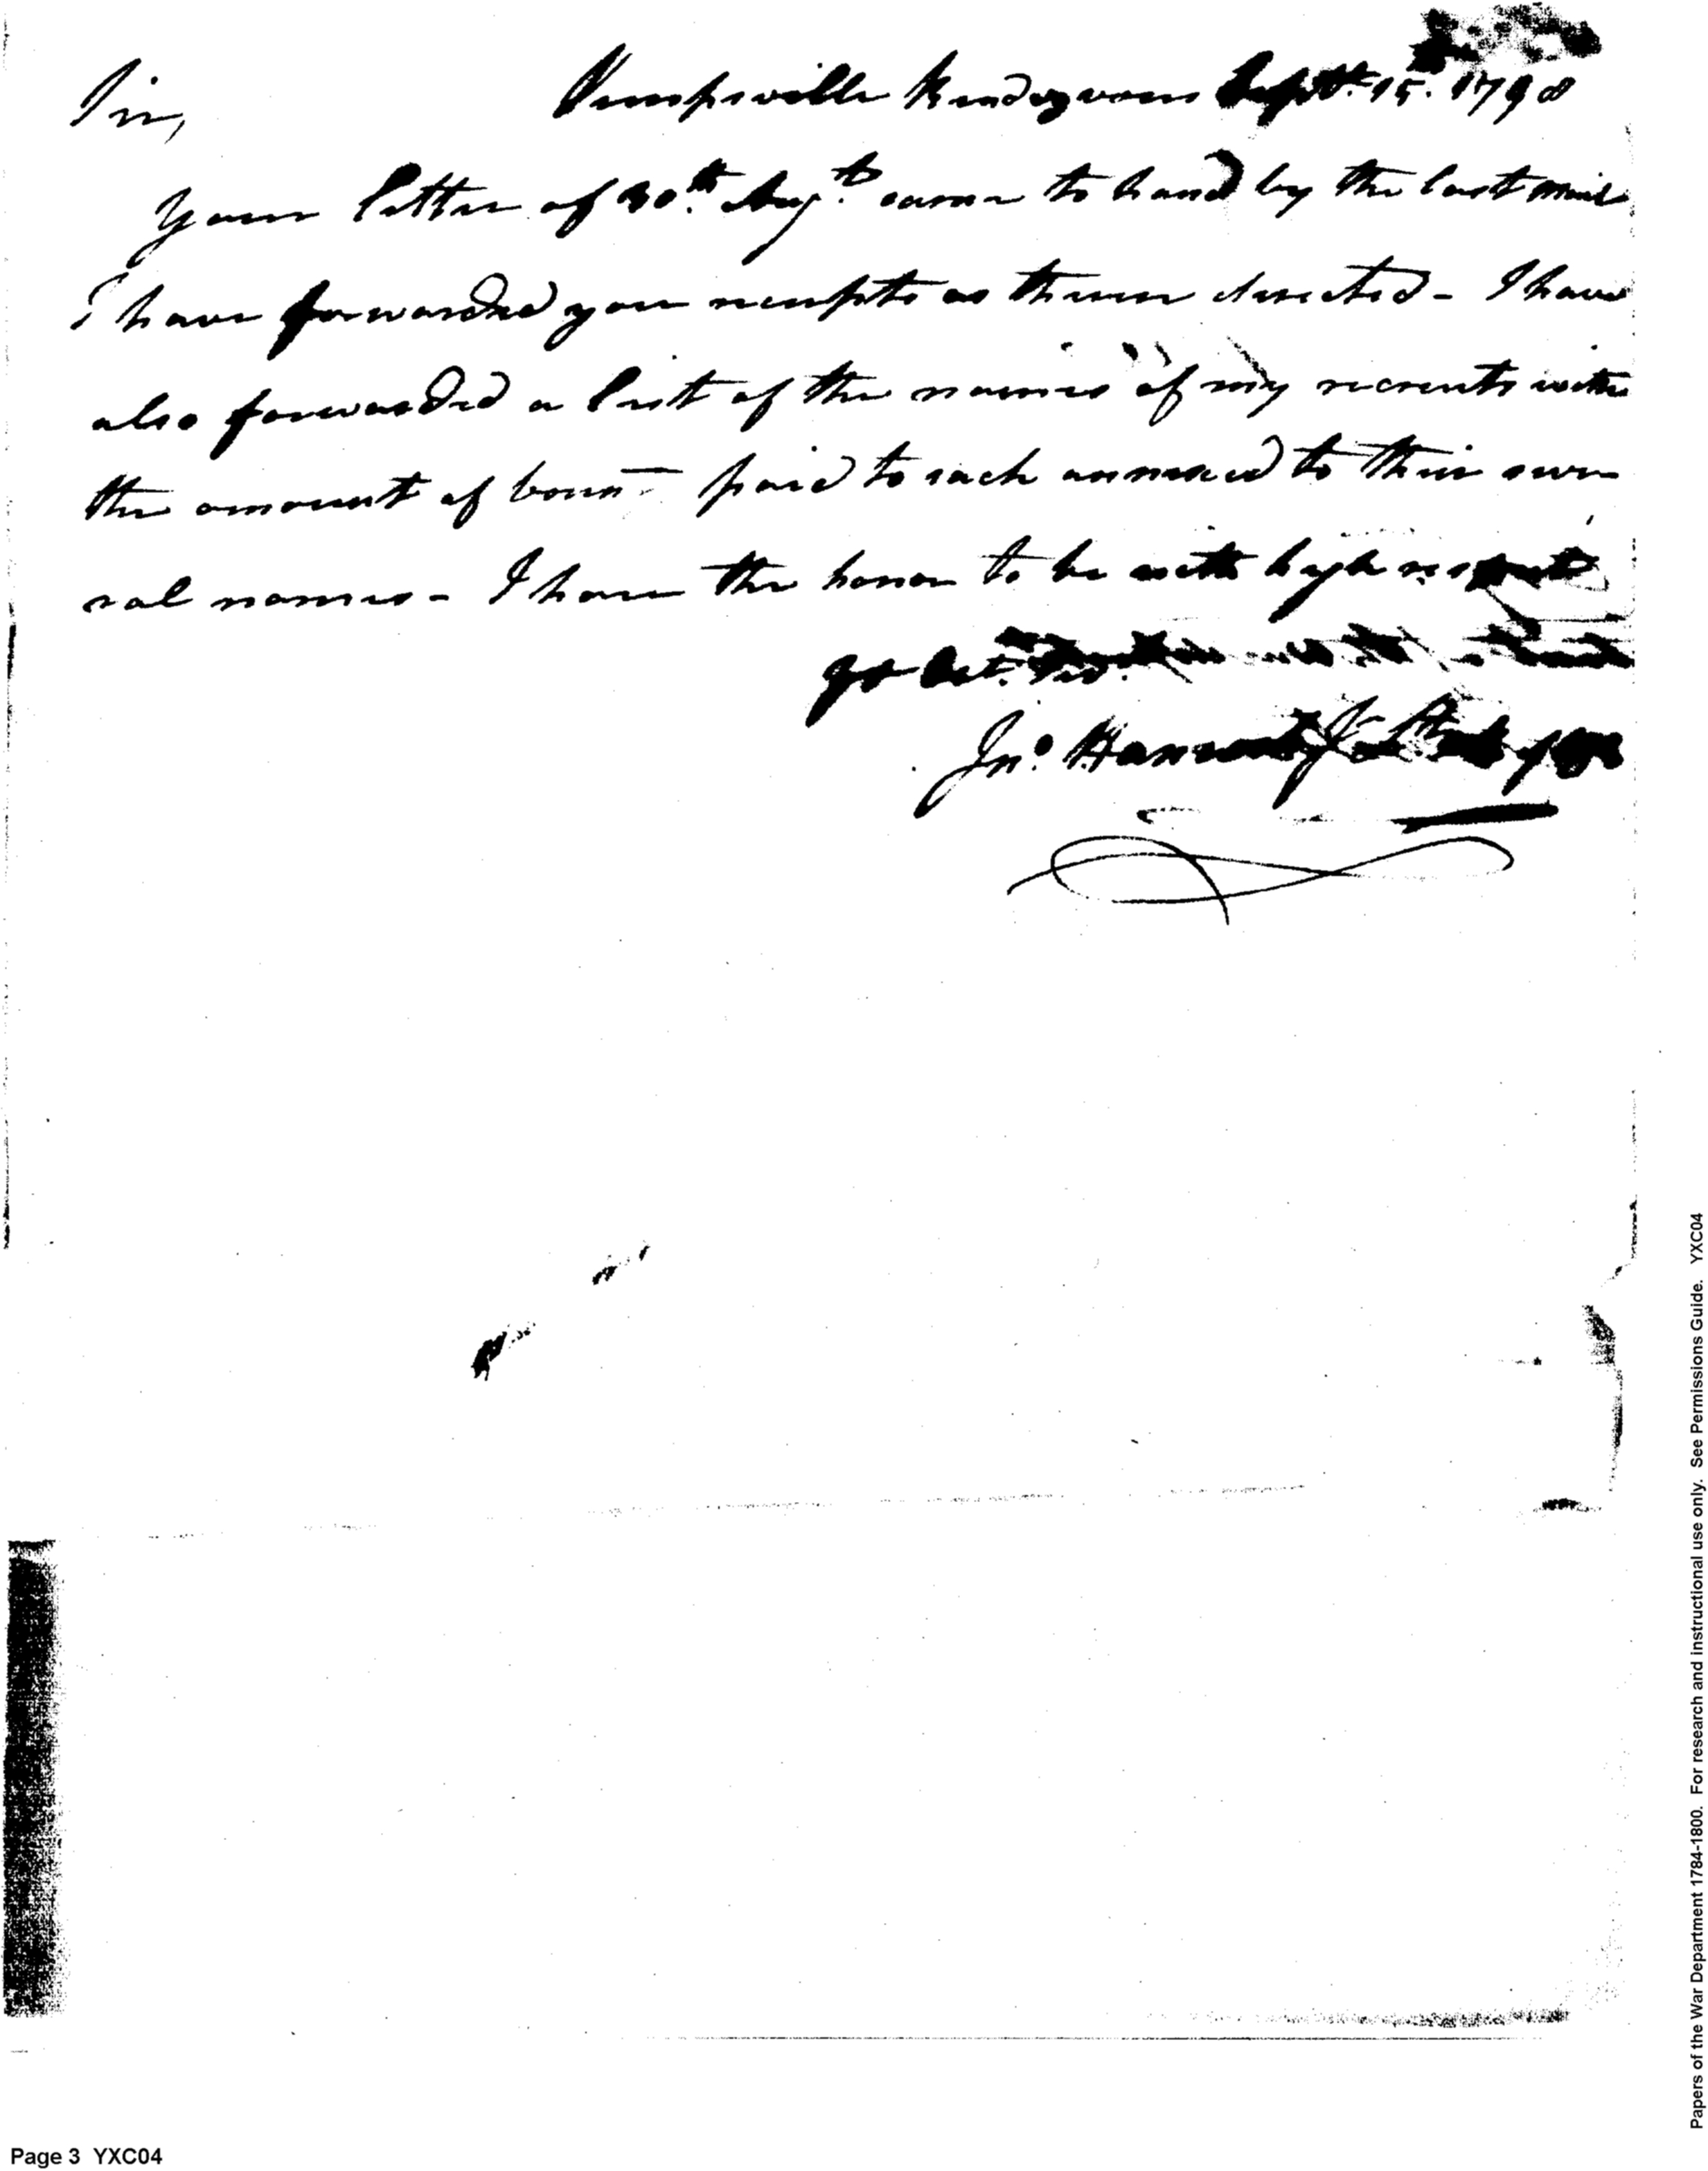 Sir, Kempsville Rendezvous Septr. 15. 1798
Your letter of 30th. Augt. came to hand by the last mail
I have forwarded you receipts as therein directed - I have
also forwarded a list of the names of my recruits with
the amount of boun paid to each annexed to their seve
ral names - I have the honor to be with high respect
yr obt.
Jno.
Page 3 YXC04
Papers of the War Department 1784-1800. For research and instructional use only. See Permissions Guide. YXC04